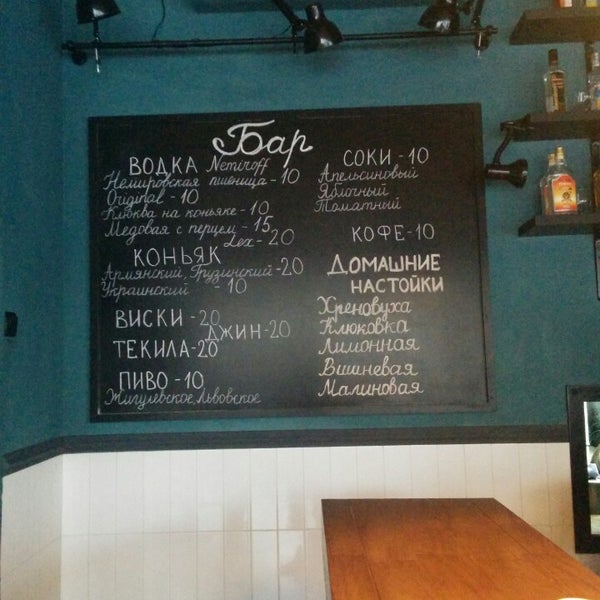 Бар
ВОДКА Nemiroff
Немировская пшеница - 10
Original - 10
Клюква на коньяке - 10
Медовая с перцем - 15
Lex - 20
КОНЬЯК
Армянский, Грузинский - 20
Украинский - 10
ВИСКИ - 20
ДЖИН - 20
ТЕКИЛА - 20
ПИВО - 10
Жигулевское, Львовское
СОКИ - 10
Апельсиновый
Яблочный
Томатный
КОФЕ - 10
ДОМАШНИЕ
НАСТОЙКИ
Хреновуха
Клюковка
Лимонная
Вишневая
Малиновая